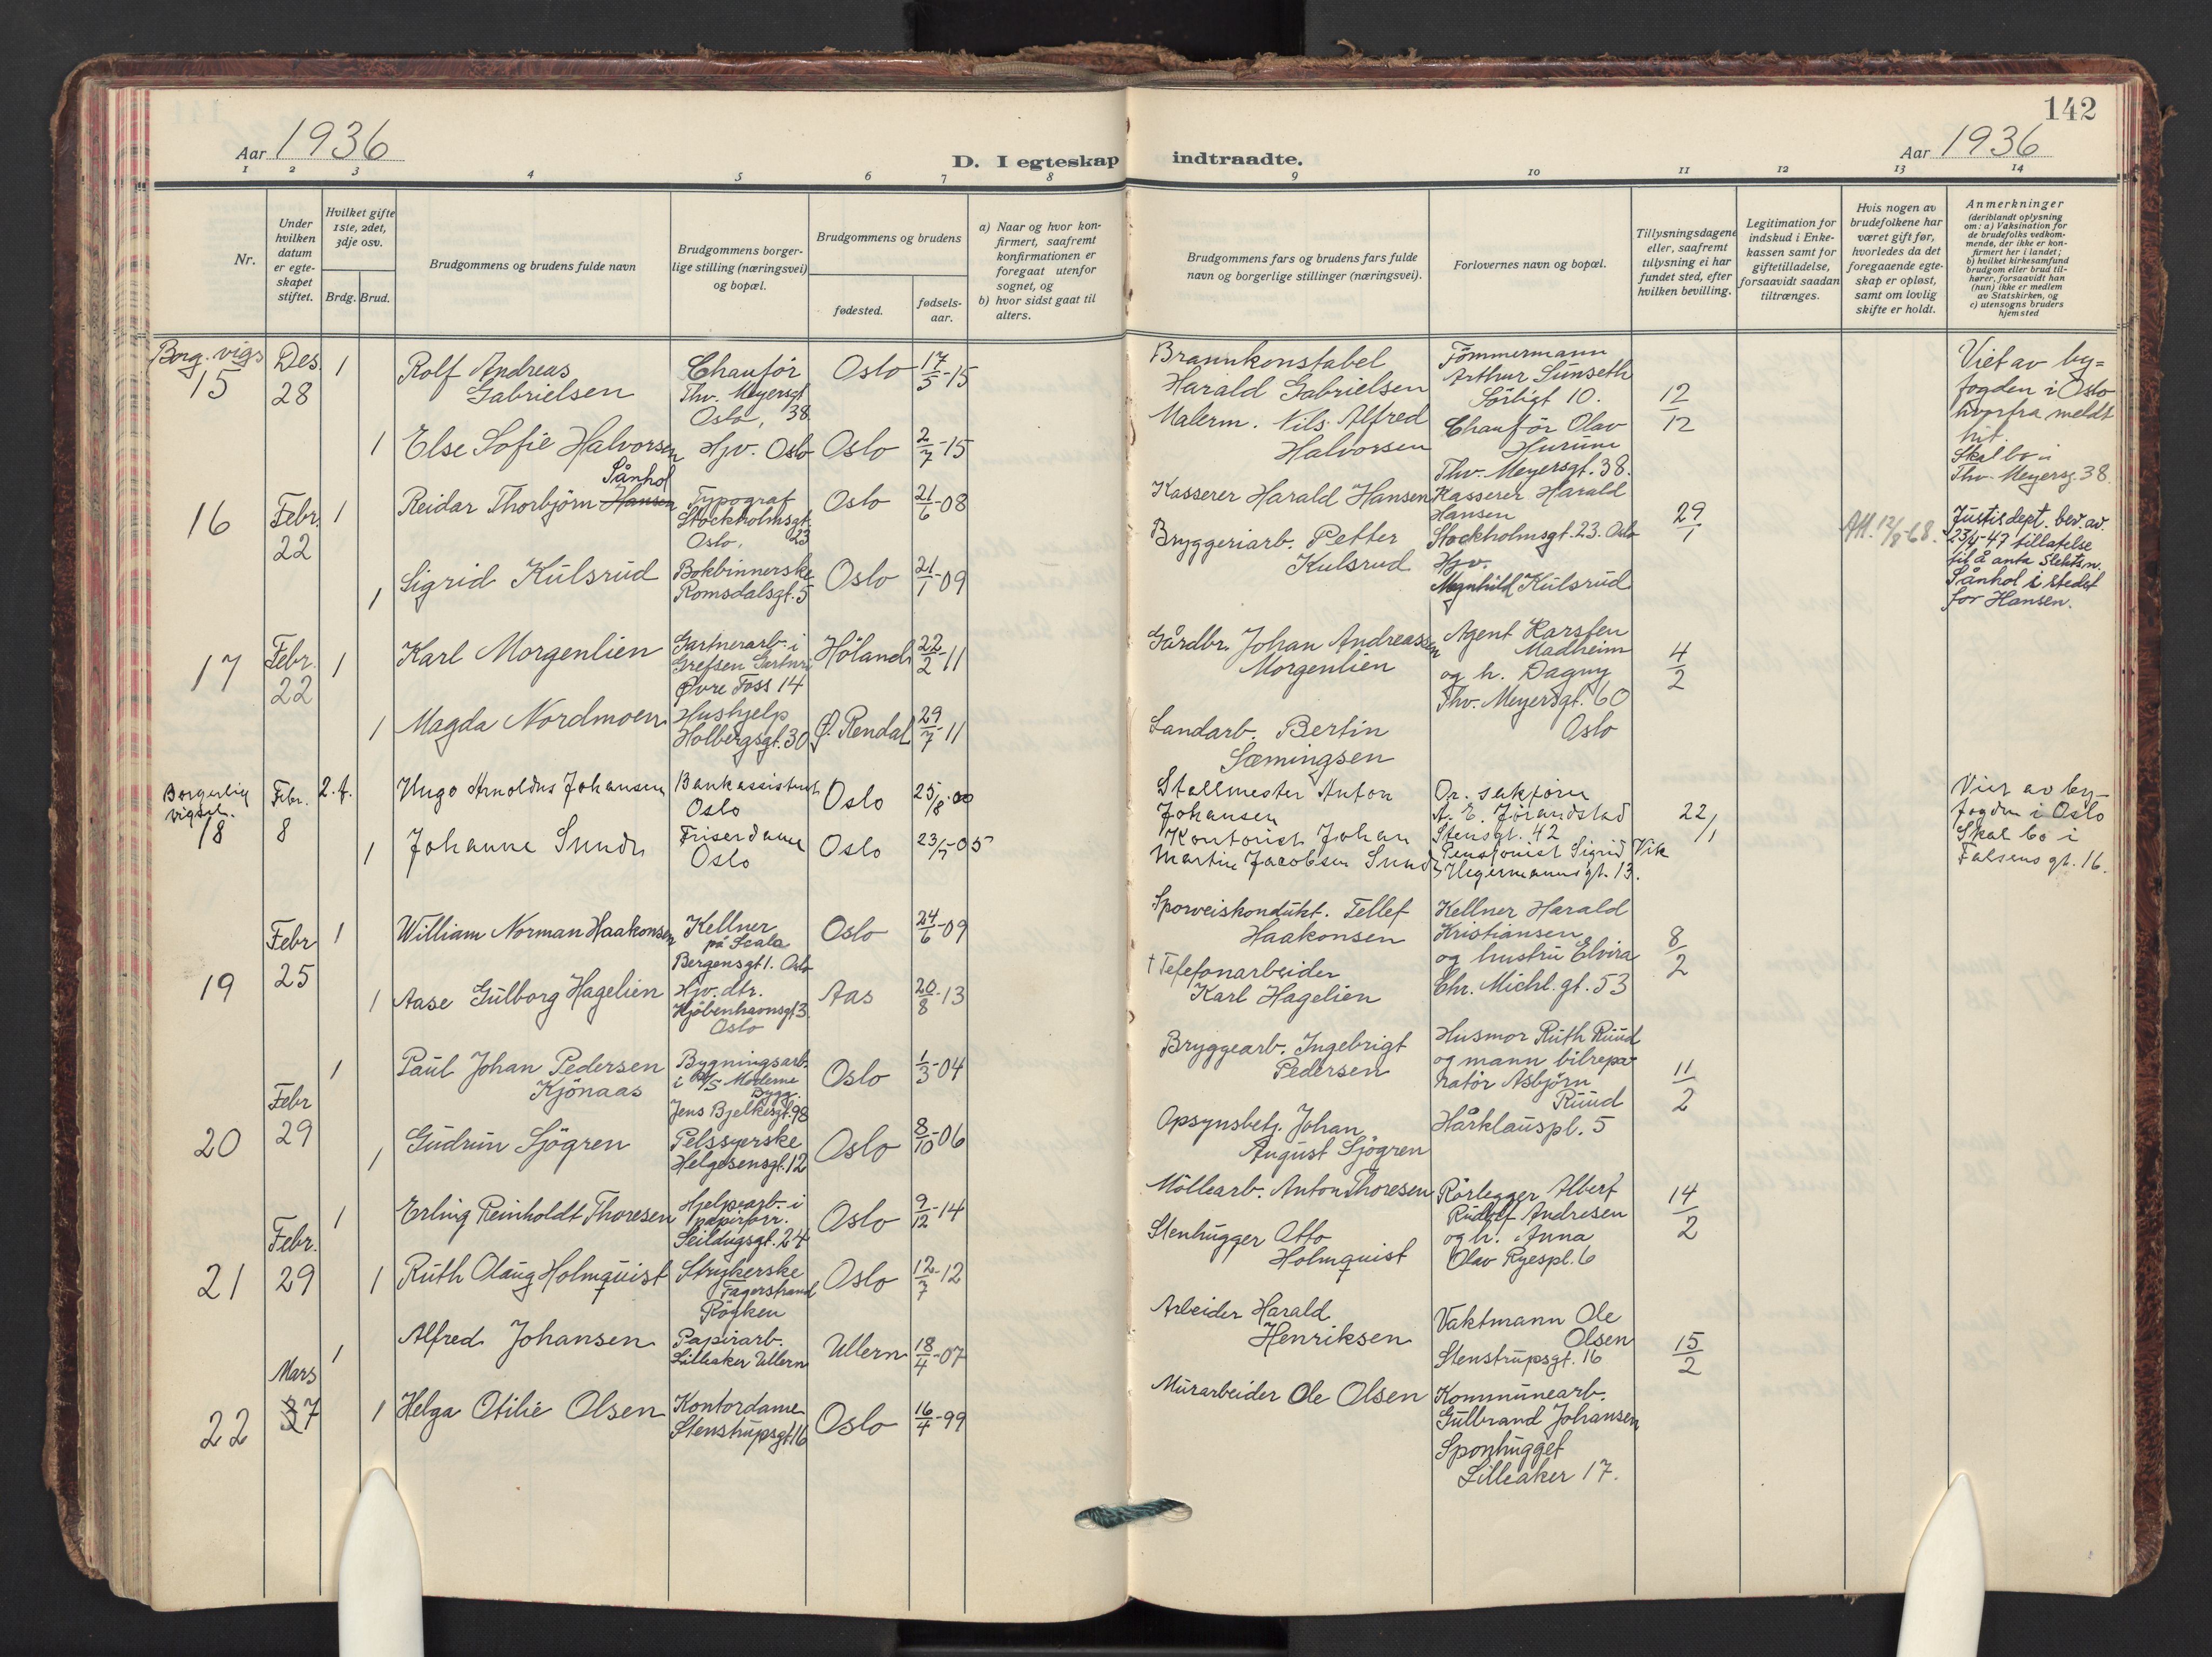 142
Aar 1936
D. I egteskap indtraadte.
Aar 1936
1 2 3 4 5 6 7 8 9 10 11 12 13 14
Nr.
Under hvilken datum er egte-skapet stiftet.
Hvilket gifte 1ste, 2det, 3dje osv.
Brdg. Brud.
Brudgommens og brudens fulde navn
Brudgommens borger-lige stilling (næringsvei) og bopæl.
Brudgommens og brudens
fødested.
fødsels-aar.
a) Naar og hvor kon-firmert, saafremt konfirmationen er foregaat utenfor sognet, og
b) hvor sidst gaat til alters.
Brudgommens fars og brudens fars fulde navn og borgerlige stillinger (næringsvei).
Forlovernes navn og bopæl.
Tillysningsdagene eller, saafremt tillysning ei har fundet sted, efter hvilken bevilling.
Legitimation for indskud i Enke-kassen samt for giftetilladelse, forsaavidt saadan tiltrænges.
Hvis nogen av brudefolkene har været gift før, hvorledes da det foregaaende egte-skap er opløst, samt om lovlig skifte er holdt.
Anmerkninger
(deriblandt oplysning om: a) Vaksination for de brudefolks vedkom-mende, der ikke er kon-firmert her i landet;
b) hvilket kirkesamfund brudgom eller brud til-hører, forsaavidt han (hun) ikke er medlem av Statskirken, og
c) utensogns bruders hjemsted
Borg. vigs
15
Des 28
1
Rolf Andreas
Gabrielsen
Chauför
Thv. Meyersgt
Oslo, 38
Oslo
17/5-15
Brannkonstabel
Harald Gabrielsen
Tömmermann
Arthur Sünseth
Sörligt 10.
12/12
Viet av by=
fogden i Oslo
hvorfra meldt
hit.
Skal bo i
Thv. Meyersg. 38.
1
Else Sofie Halvorsen
Hjv. Oslo
Oslo
2/7-15
Malerm. Nils Alfred
Halvorsen
Chauför Olav
Hurum
Thv. Meyersgt. 38.
16
Febr. 22
1
Sånhol
Reidar Thorbjörn Hansen
Typograf
Stockholmsgt.
Oslo, 23
Oslo
21/6-08
Kasserer Harald Hansen
Kasserer Harald
Hansen
Stockholmsgt. 23. Oslo
29/1
Att. 12/8-68.
Justisdept. bev. av.
23/4-47 tillatelse
til å anta Slektsn.
Sånhol i stedet
for Hansen.
1
Sigrid Kulsrud
Bokbinnerske
Romsdalsgt. 5
Oslo
21/1-09
Bryggeriarb. Petter
Kulsrud
Hjv.
Magnhild Kulsrud
17
Febr. 22
1
Karl Morgenlien
Gartnerarb. i
Grefsen Gartnri
Øvre Foss 14
Höland
22/2-11
Gårdbr. Johan Andreassen
Morgenlien
Agent Karsten
Madheim
og h. Dagny
Thv. Meyersgt. 60
Oslo
4/2
1
Magda Nordmoen
Hushjelp
Holbergsgt. 30
Ø. Rendal
29/7-11
Landarb. Bertin
Sæmingsen
Borgerlig
vigsel.
18
Febr. 8
2. f.
Hugo Arnoldus Johansen
Bankassistent
Oslo
Oslo
25/8-00
Stallmester Anton
Johansen
Or. sakförer
A. E. Jörandstad
Stensgt. 42
22/1
Viet av by-
fogden i Oslo
Skal bo i
Falsens gt. 16.
1
Johanne Sundr
Friserdame
Oslo
Oslo
23/7-05
Kontorist Johan
Martin Jacobsen Sundr
Pensjonist Sigrid Vik
Hegermannsgt. 13.
19
Febr 25
1
William Norman Haakonsen
Kellner
på Scala
Bergensgt 1. Oslo
Oslo
24/6-09
Sporveiskondukt. Tellef
Haakonsen
Kellner Harald
Kristiansen
og hustru Elvira
Chr. Michl. gt. 53
8/2
1
Aase Gulborg Hagelien
Hjv. dtr.
Kjöbenhavnsgt 3.
Oslo
Aas
20/8-13
† Telefonarbeider
Karl Hagelien
20
Febr 29
1
Paul Johan Pedersen
Kjönaas
Bygningsarb.
i A/S Moderne
Bygg.
Jens Bjelkesgt. 98
Oslo
1/3-04
Bryggearb. Ingebrigt
Pedersen
Husmor Ruth Ruud
og mann bilrepa-
ratör Asbjörn
Ruud
Hårklauspl. 5
11/2
1
Gudrun Sjögren
Pelssyerske
Helgesensgt. 12
Oslo
8/10-06
Opsynsbetj. Johan
August Sjögren
21
Febr. 29
1
Erling Reinholdt Thoresen
Hjelpearb. i
papirforr.
Seildugsgt. 24
Oslo
9/12-14
Möllearb. Anton Thoresen
Rörlegger Albert
Rudolf Andresen
og h. Anna
Olav Ryespl. 6
14/2
1
Ruth Olaug Holmquist
Strykerske
Fagerstrand
Röyken
Oslo
12/7-12
Stenhugger Otto
Holmquist
22
Mars 7
1
Alfred Johansen
Papirarb.
Lilleaker Ullern
Ullern
18/4-07
Arbeider Harald
Henriksen
Vaktmann Ole
Olsen
Stenstrupsgt. 16
15/2
1
Helga Otilie Olsen
Kontordame
Stenstrupsgt 16
Oslo
16/4-99
Murarbeider Ole Olsen
Kommunearb.
Gulbrand Johansen
Sponhugget
Lilleaker 17.